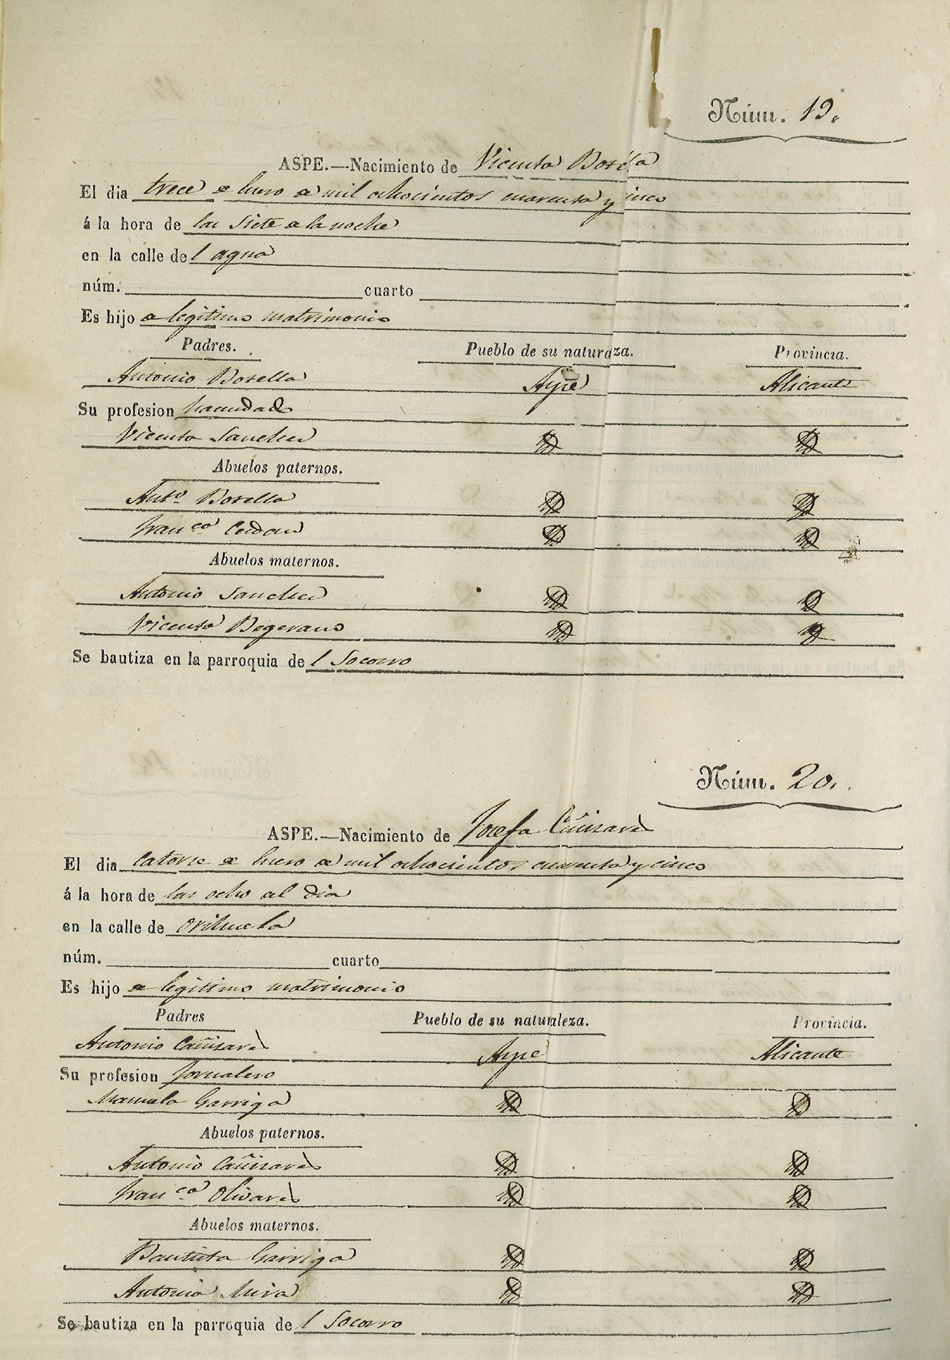 Núm. 19.
ASPE.—Nacimiento de Vicenta Botella
El dia trece de Enero de mil ochocientos cuarenta y cinco
á la hora de las siete de la noche
en la calle del agua
núm. cuarto
Es hijo de legitimo matrimonio
Padres. Pueblo de su naturaza. Provincia.
Antonio Botella Aspe Alicante
Su profesion hacendado
Vicenta Sanchez Id Id
Abuelos paternos.
Antº Botella Id Id
Franca Cerdan Id Id
Abuelos maternos.
Antonio Sanchez Id Id
Vicenta Begerano Id Id
Se bautiza en la parroquia del Socorro
Núm. 20.
ASPE.—Nacimiento de Josefa Cañizares
El dia catorce de Enero de mil ochocientos cuarenta y cinco
á la hora de las ocho del dia
en la calle de orihuela
núm. cuarto
Es hijo de legitimo matrimonio
Padres Pueblo de su naturaleza. Provincia.
Antonio Cañizares Aspe Alicante
Su profesion Jornalero
Manuela Garriga Id Id
Abuelos paternos.
Antonio Cañizares Id Id
Franca Olivares Id Id
Abuelos maternos.
Bautista Garriga Id Id
Antonia Mira Id Id
Se bautiza en la parroquia del Socorro